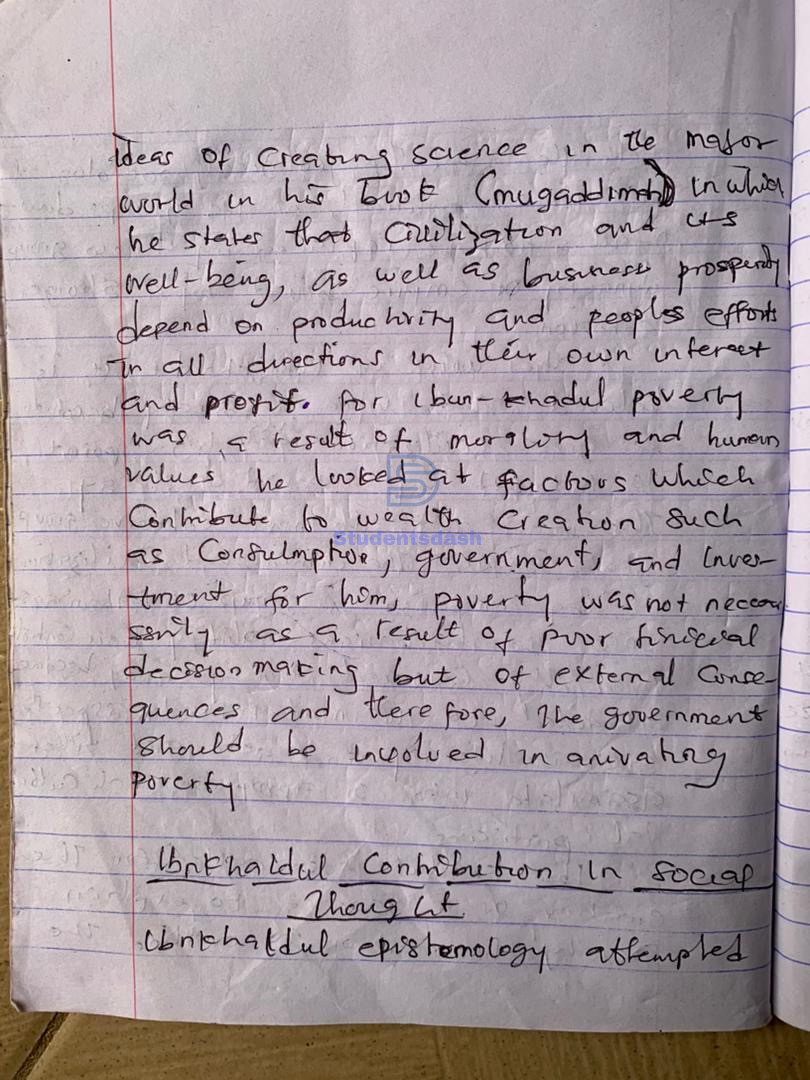 ideas of Creating science in the major
world in his book (mugaddimah) in which
he states that Civilization and its
well-being, as well as business prosperity
depend on productivity and peoples efforts
in all directions in their own interest
and profit. for Ibun-khadul poverty
was a result of and human
values he looked at factous which
Contribute to wealth Creation such
as Consulmption, government, and Inves-
tment for him, poverty was not necces
ssrily as a result of poor finicial
decision making but of external Conse-
quences and therefore, the government
should be involved in
poverty
Ibnkhaldul Contribution In Social
Thought
Ibnkhaldul epistemology attempted
Studentsdash